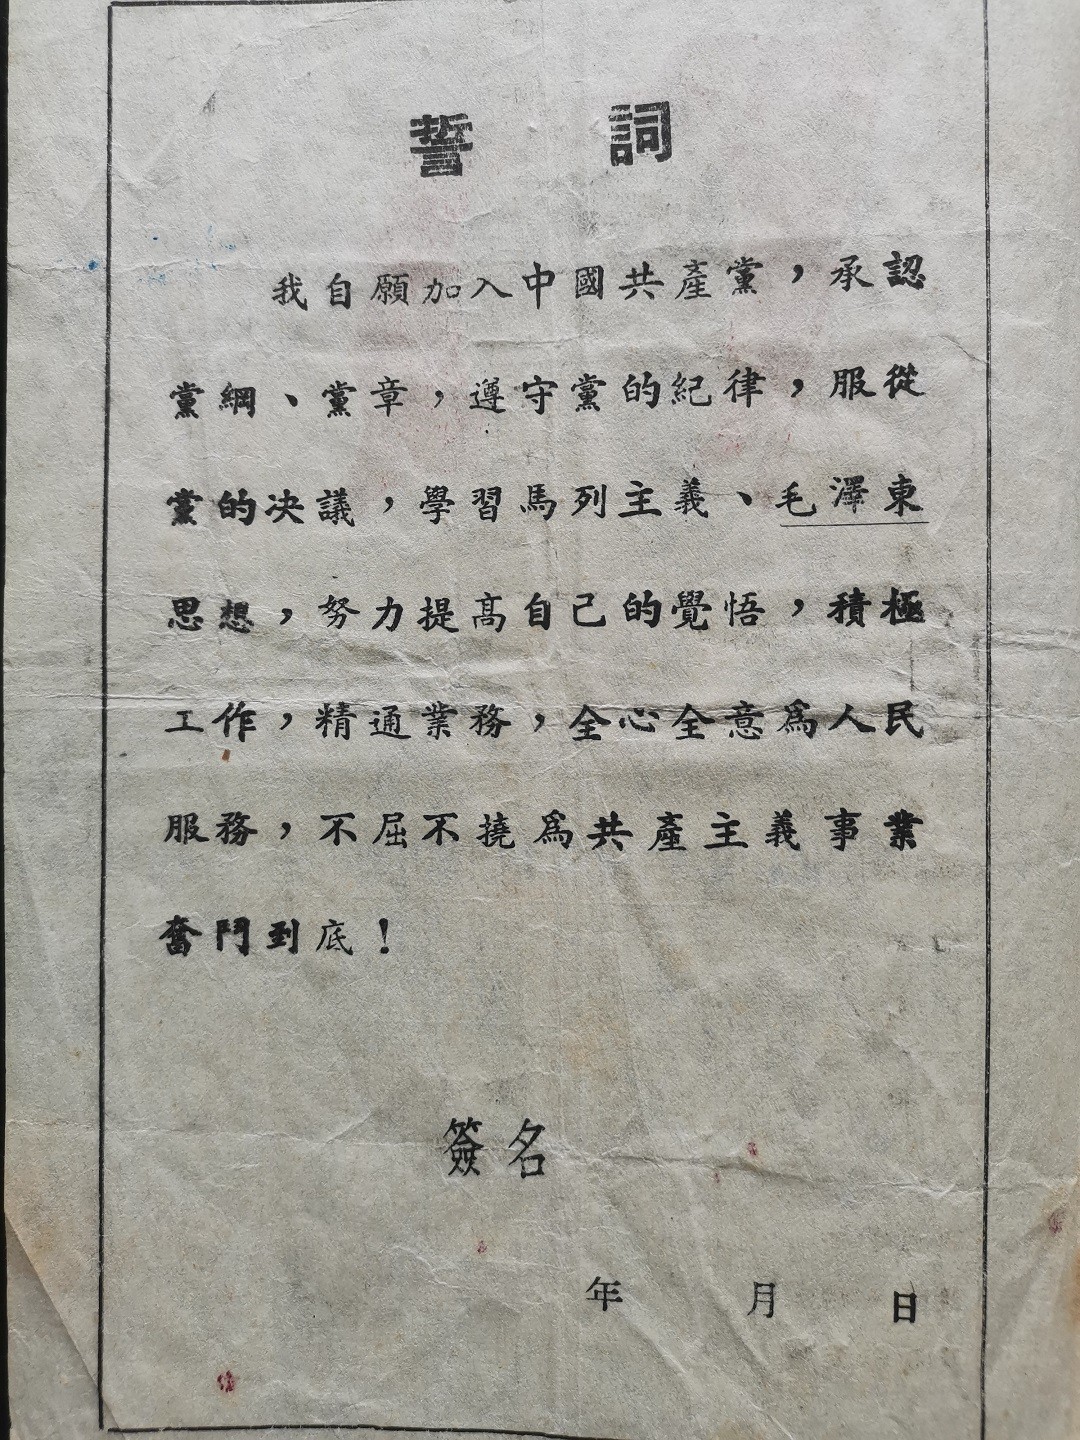 誓 詞
我自願加入中國共產黨，承認
黨綱、黨章，遵守黨的紀律，服從
黨的决議，學習馬列主義、毛澤東
思想，努力提高自己的覺悟，積極
工作，精通業務，全心全意爲人民
服務，不屈不撓爲共產主義事業
奮鬥到底！
簽名
年 月 日